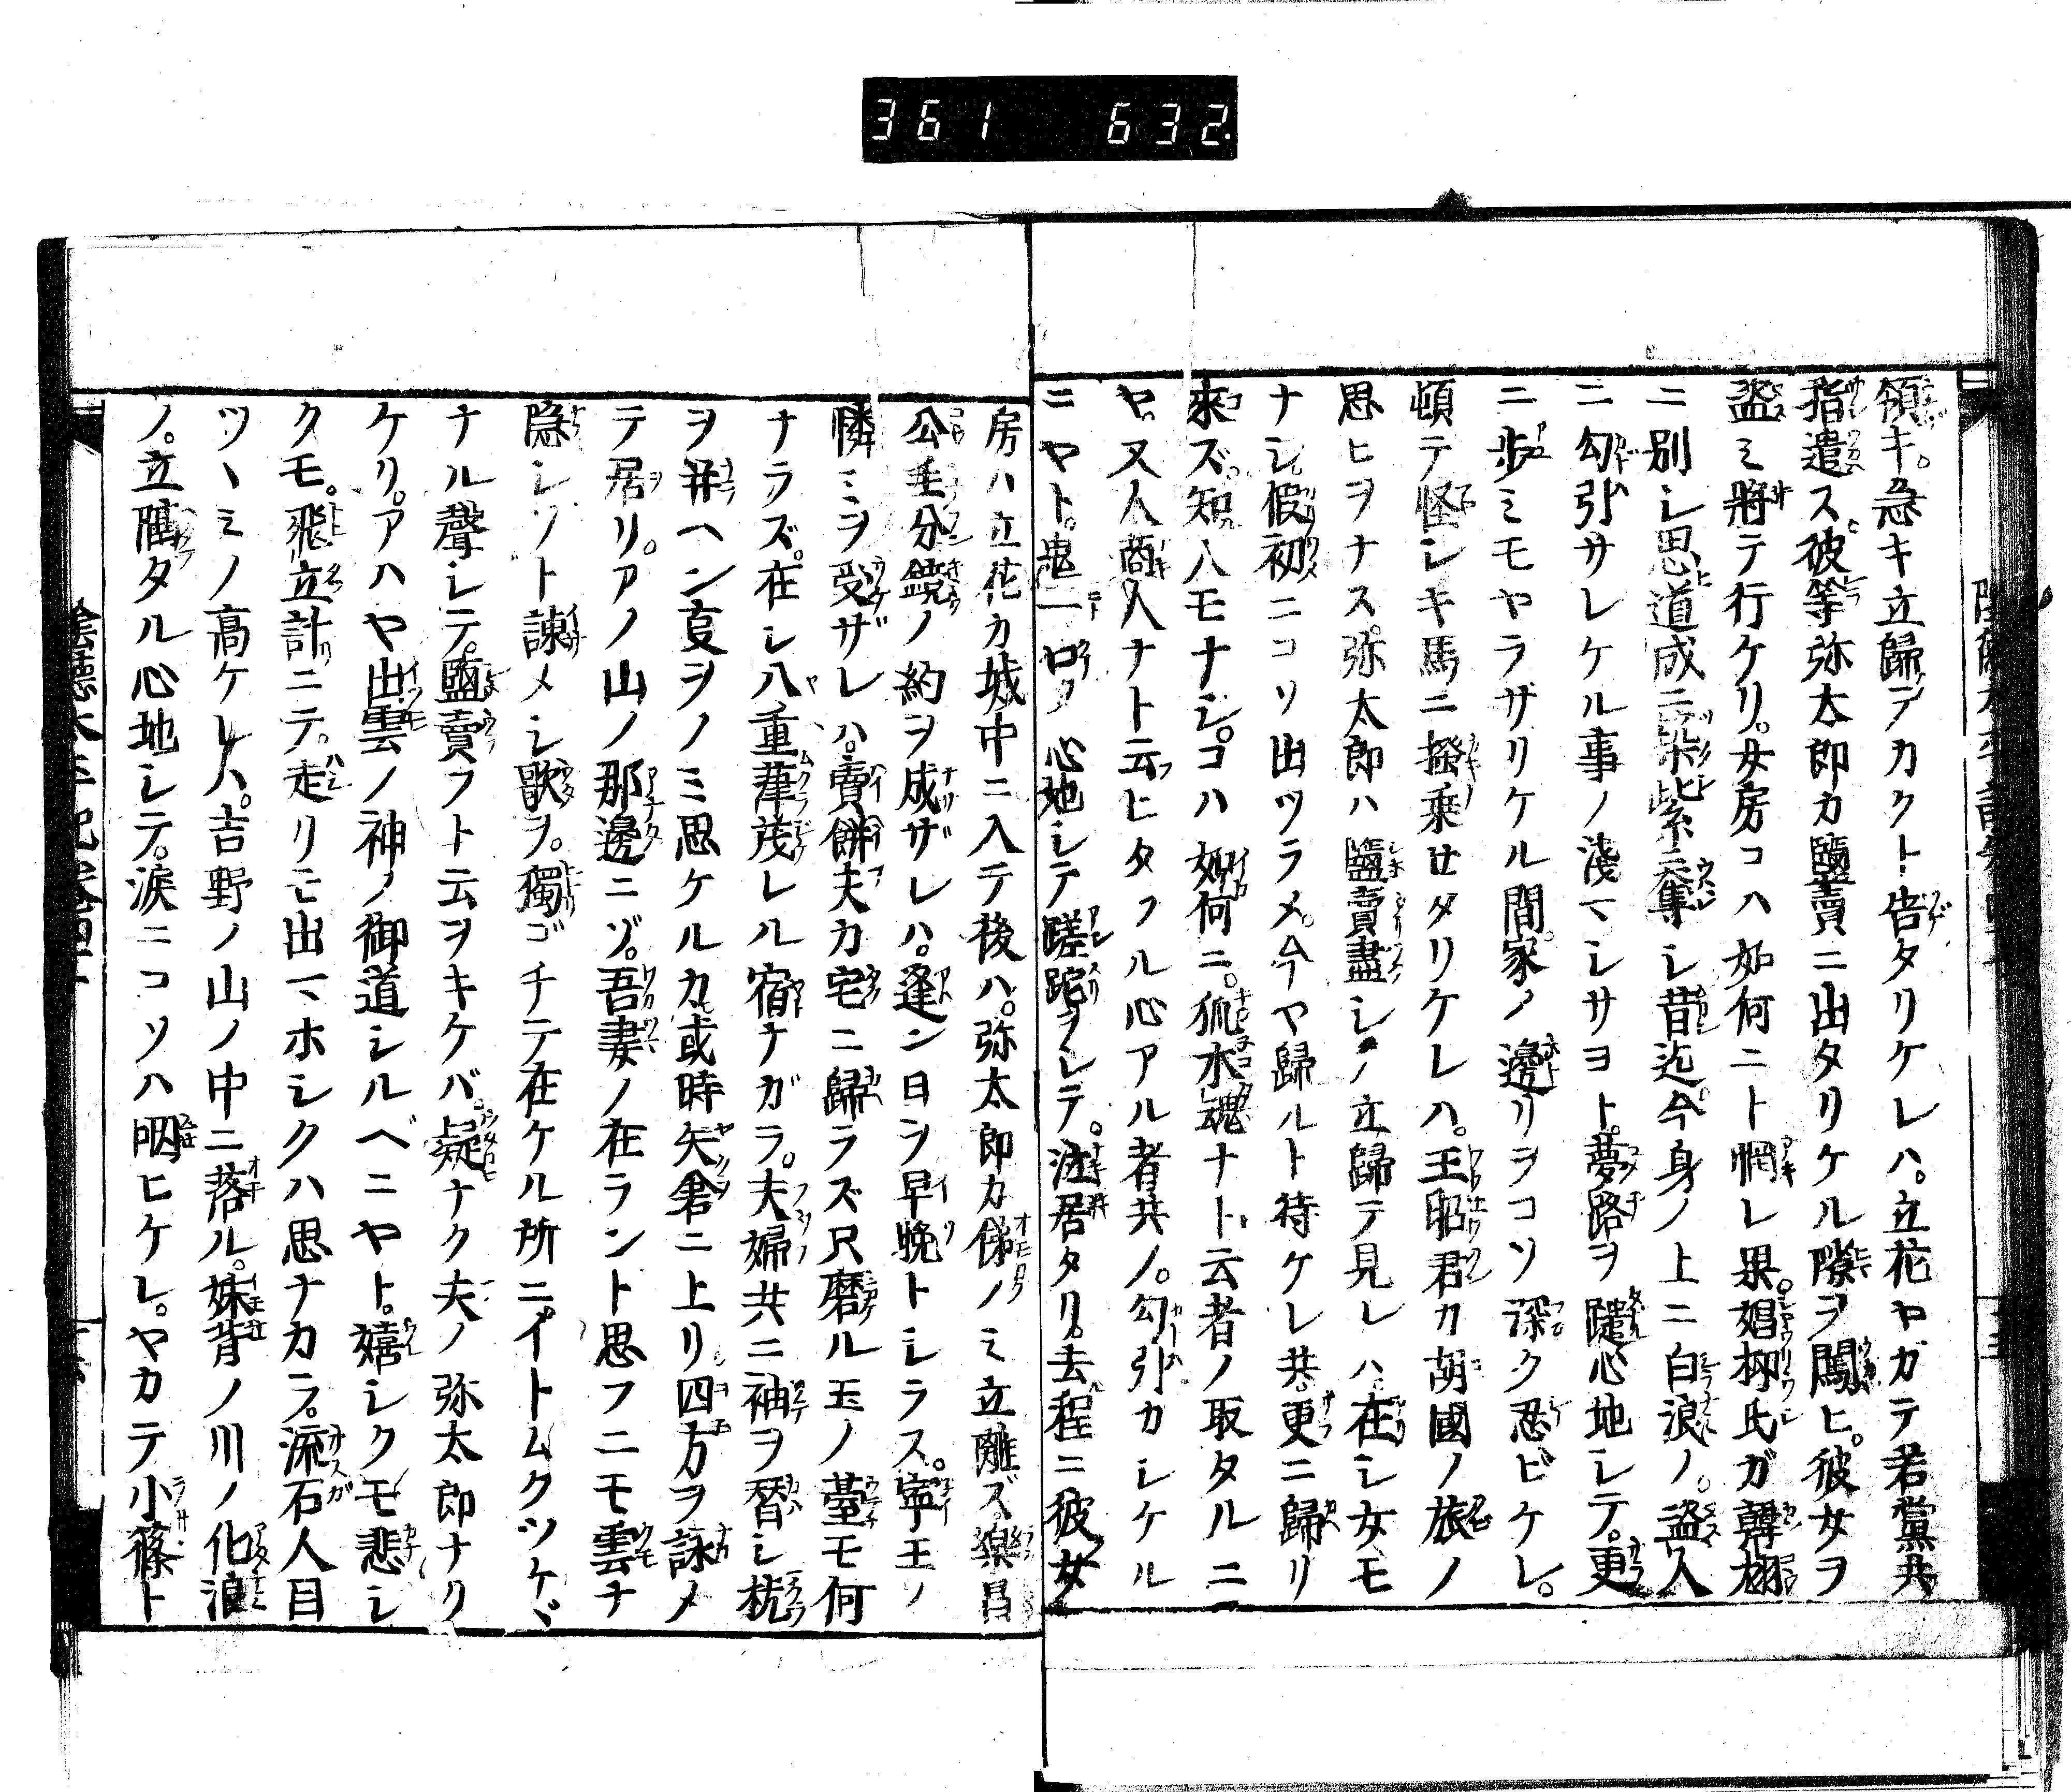 361 632
領キ。急キ立歸テカクト告タリケレハ。立花ヤガテ若黨共
指遣ス彼等弥太郎カ鹽賣ニ出タリケル隙ヲ闖ヒ。彼女ヲ
盗ミ將テ行ケリ。女房コハ如何ニト惘レ果。娼柳氏ガ韓翃
ニ別レ思道成ニ染紫ニ奪レ昔迄今身ノ上ニ白浪ノ。盗人
ニ勾引サレケル事ノ淺マシサヨト。夢路ヲ躂心地シテ。更
ニ歩ミモヤラザリケル間。家ノ邊リヲコソ深ク忍ビケレ。
頓テ怪シキ馬ニ掻乗セタリケレハ。王昭君カ胡國ノ旅ノ
思ヒヲナス。弥太郎ハ鹽賣盡シノ立歸テ見レハ。在シ女モ
ナシ。假初ニコソ出ツラメ。今ヤ歸ルト待ケレ共。更ニ歸リ
來ズ。知ル人モナシ。コハ如何ニ。狐木魂ナト云者ノ取タルニ
ヤ。又人商人ナト云ヒタフル心アル者共ノ。勾引カシケル
ニヤト。鬼一口ノ心地シテ蹉跎ヲシテ。泣居タリ。去程ニ彼女
房ハ立花カ城中ニ入テ後ハ。弥太郎カ俤ノミ立離ズ。樂昌
公主分鏡ノ約ヲ成ザレハ。逢ン日ヲ早晩トシラス。寧王ノ
憐ミヲ受ザレハ。賣餅夫カ宅ニ歸ラズ尺磨ル玉ノ薹モ何
ナラズ。在シ八重葎茂レル宿ナガラ。夫婦共ニ袖ヲ替シ枕
ヲ并ヘン亊ヲノミ思ケルカ。或時矢倉ニ上リ。四方ヲ詠メ
テ居リ。アノ山ノ那邊ニゾ。吾妻ノ在ラント思フニモ雲ナ
隠シソト諫メシ歌ヲ。獨ゴチテ在ケル所ニ。イトムクツケヾ
ナル聲シテ。鹽賣フト云ヲキケバ。疑ナク夫ノ弥太郎ナリ
ケリ。アハヤ出雲ノ神ノ御道シルベニヤト。嬉シクモ悲シ
クモ。飛立計ニテ。走リモ出マホシクハ思ナカラ。流石人目
ツヽミノ高ケレハ。吉野ノ山ノ中ニ落ル。妹背ノ川ノ化浪
ノ。立隔タル心地シテ。涙ニコソハ咽ヒケレ。ヤカテ小篠ト